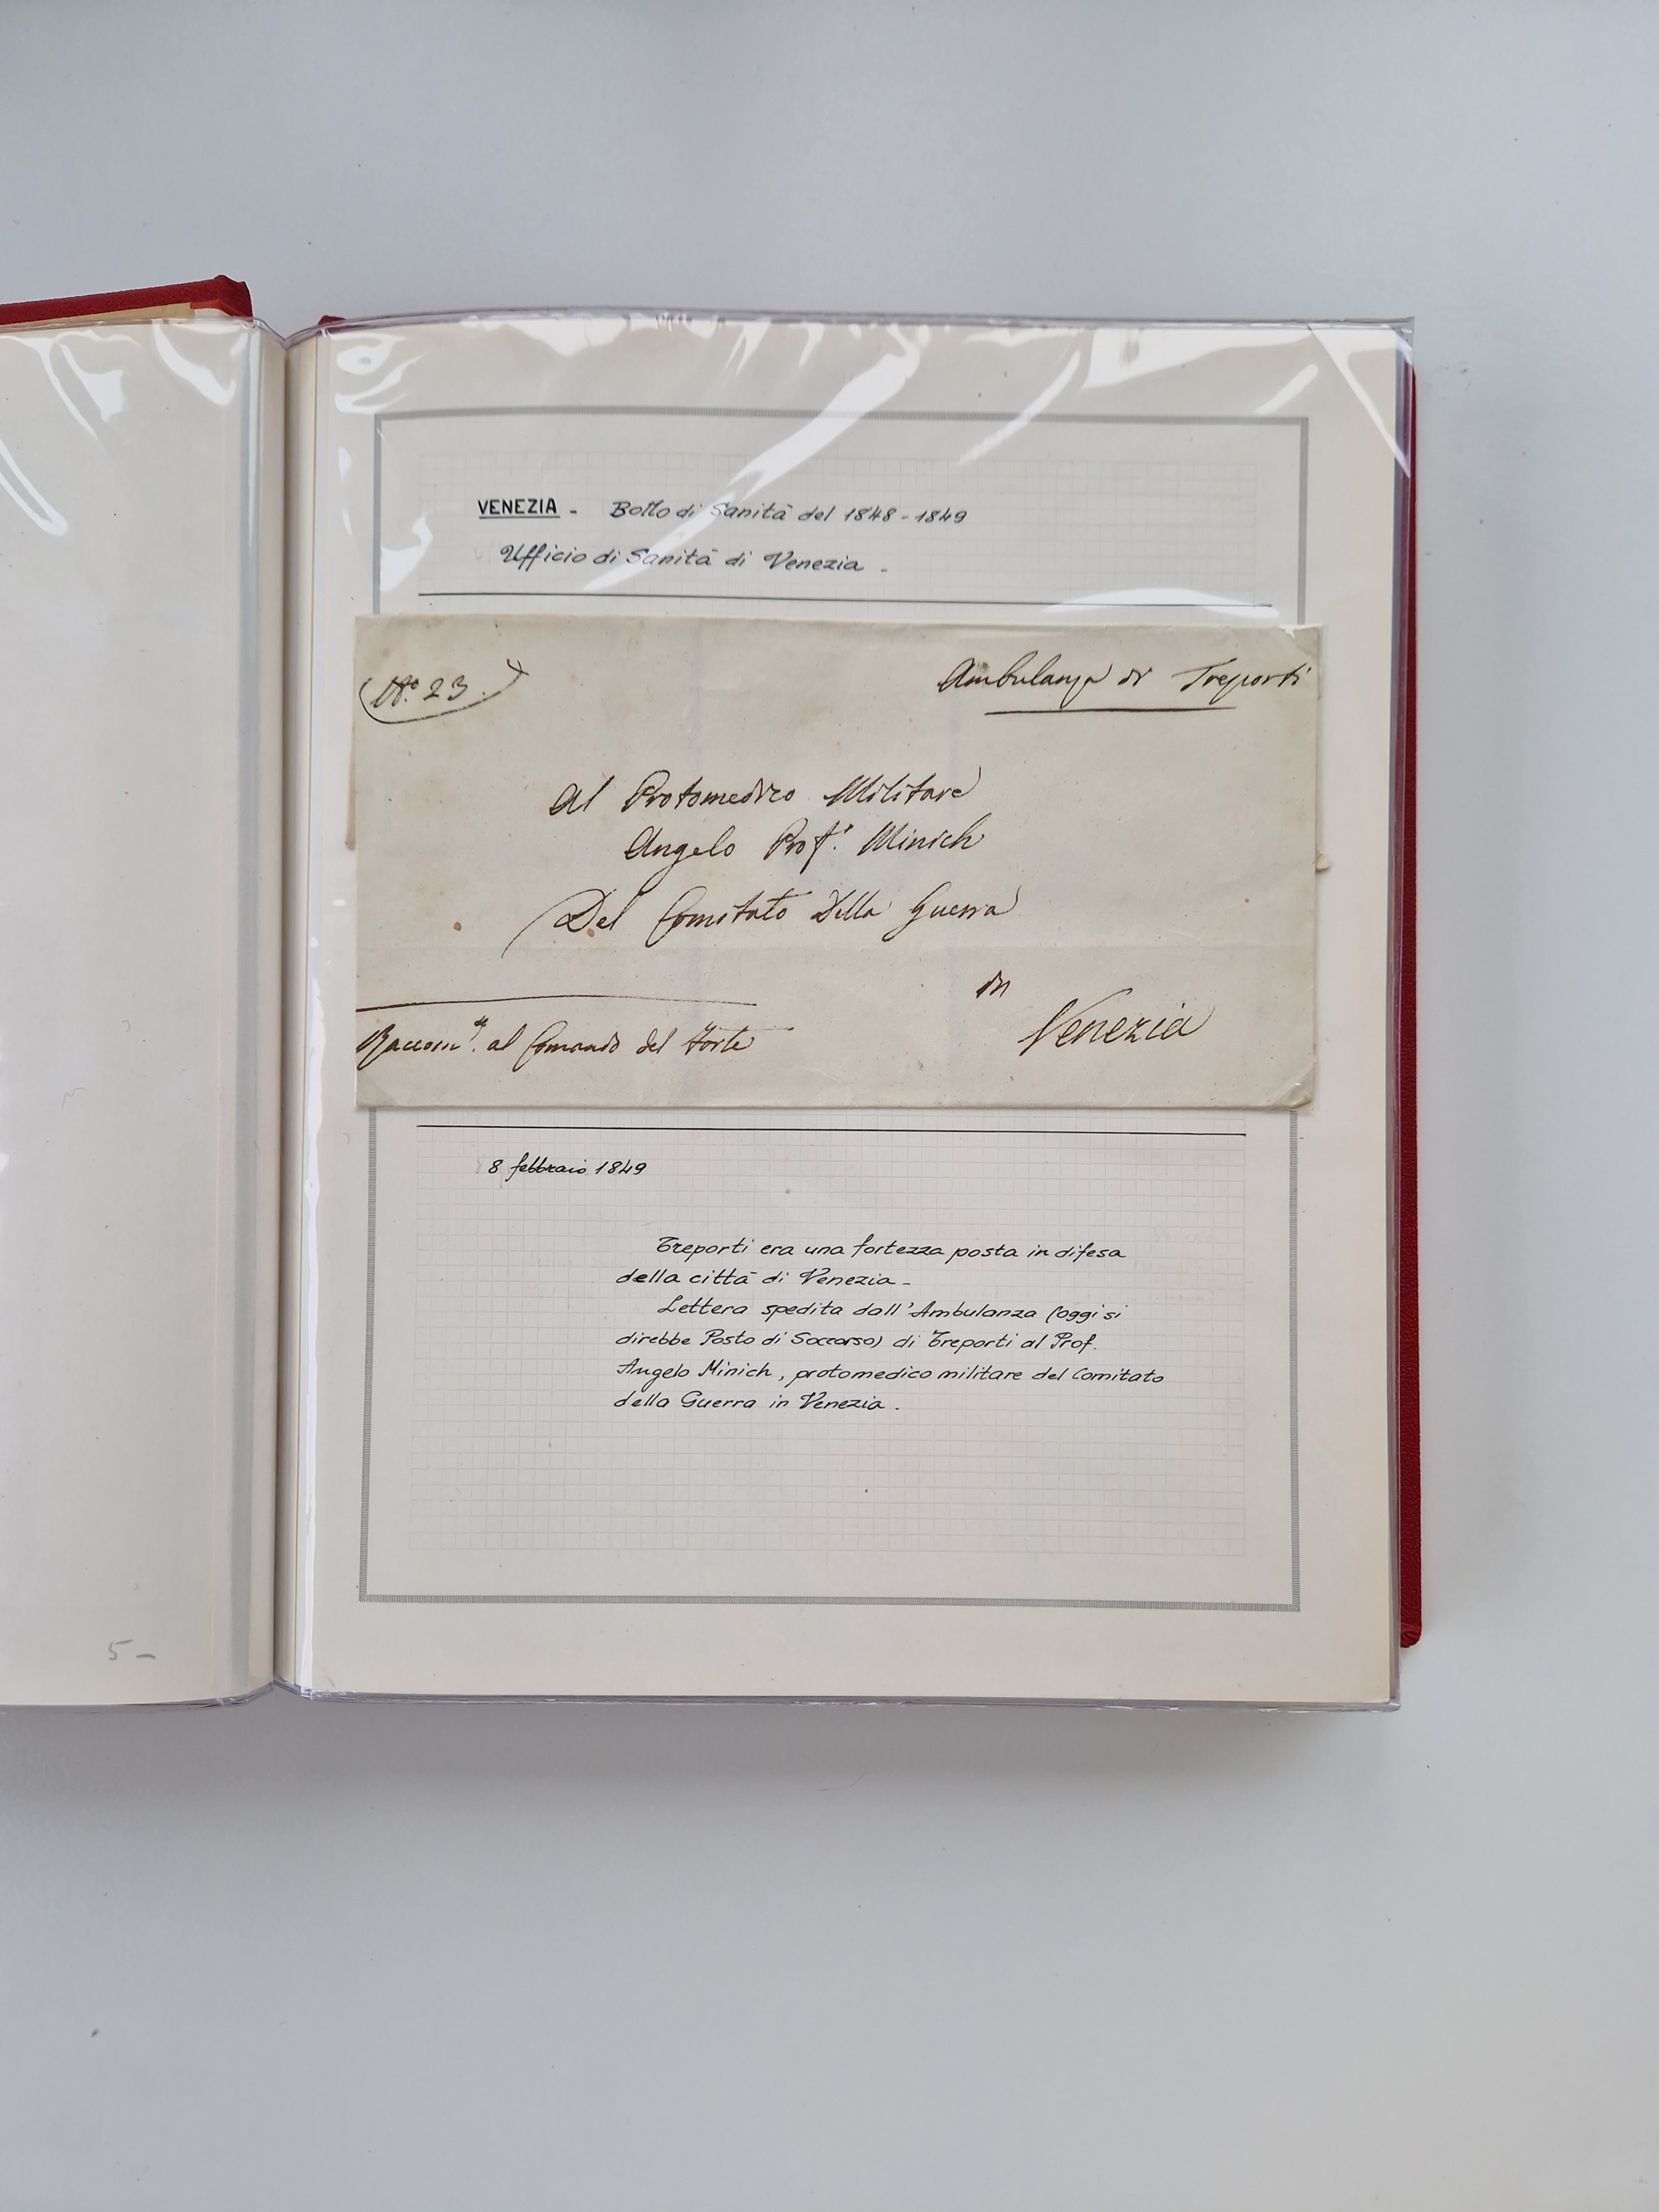 VENEZIA - Bollo di Sanità del 1848-1849
Ufficio di Sanità di Venezia -
(N.° 23.)
Ambulanza di Treporti
Al Protomedico Militare
Angelo Prof.r Minich
Del Comitato Della Guerra
in
Venezia
Raccom.ta al Comando del Forte
8 febbraio 1849
Treporti era una fortezza posta in difesa
della città di Venezia -
Lettera spedita dall'Ambulanza (oggi si
direbbe Posto di Soccorso) di Treporti al Prof.
Angelo Minich, protomedico militare del Comitato
della Guerra in Venezia.
5 -